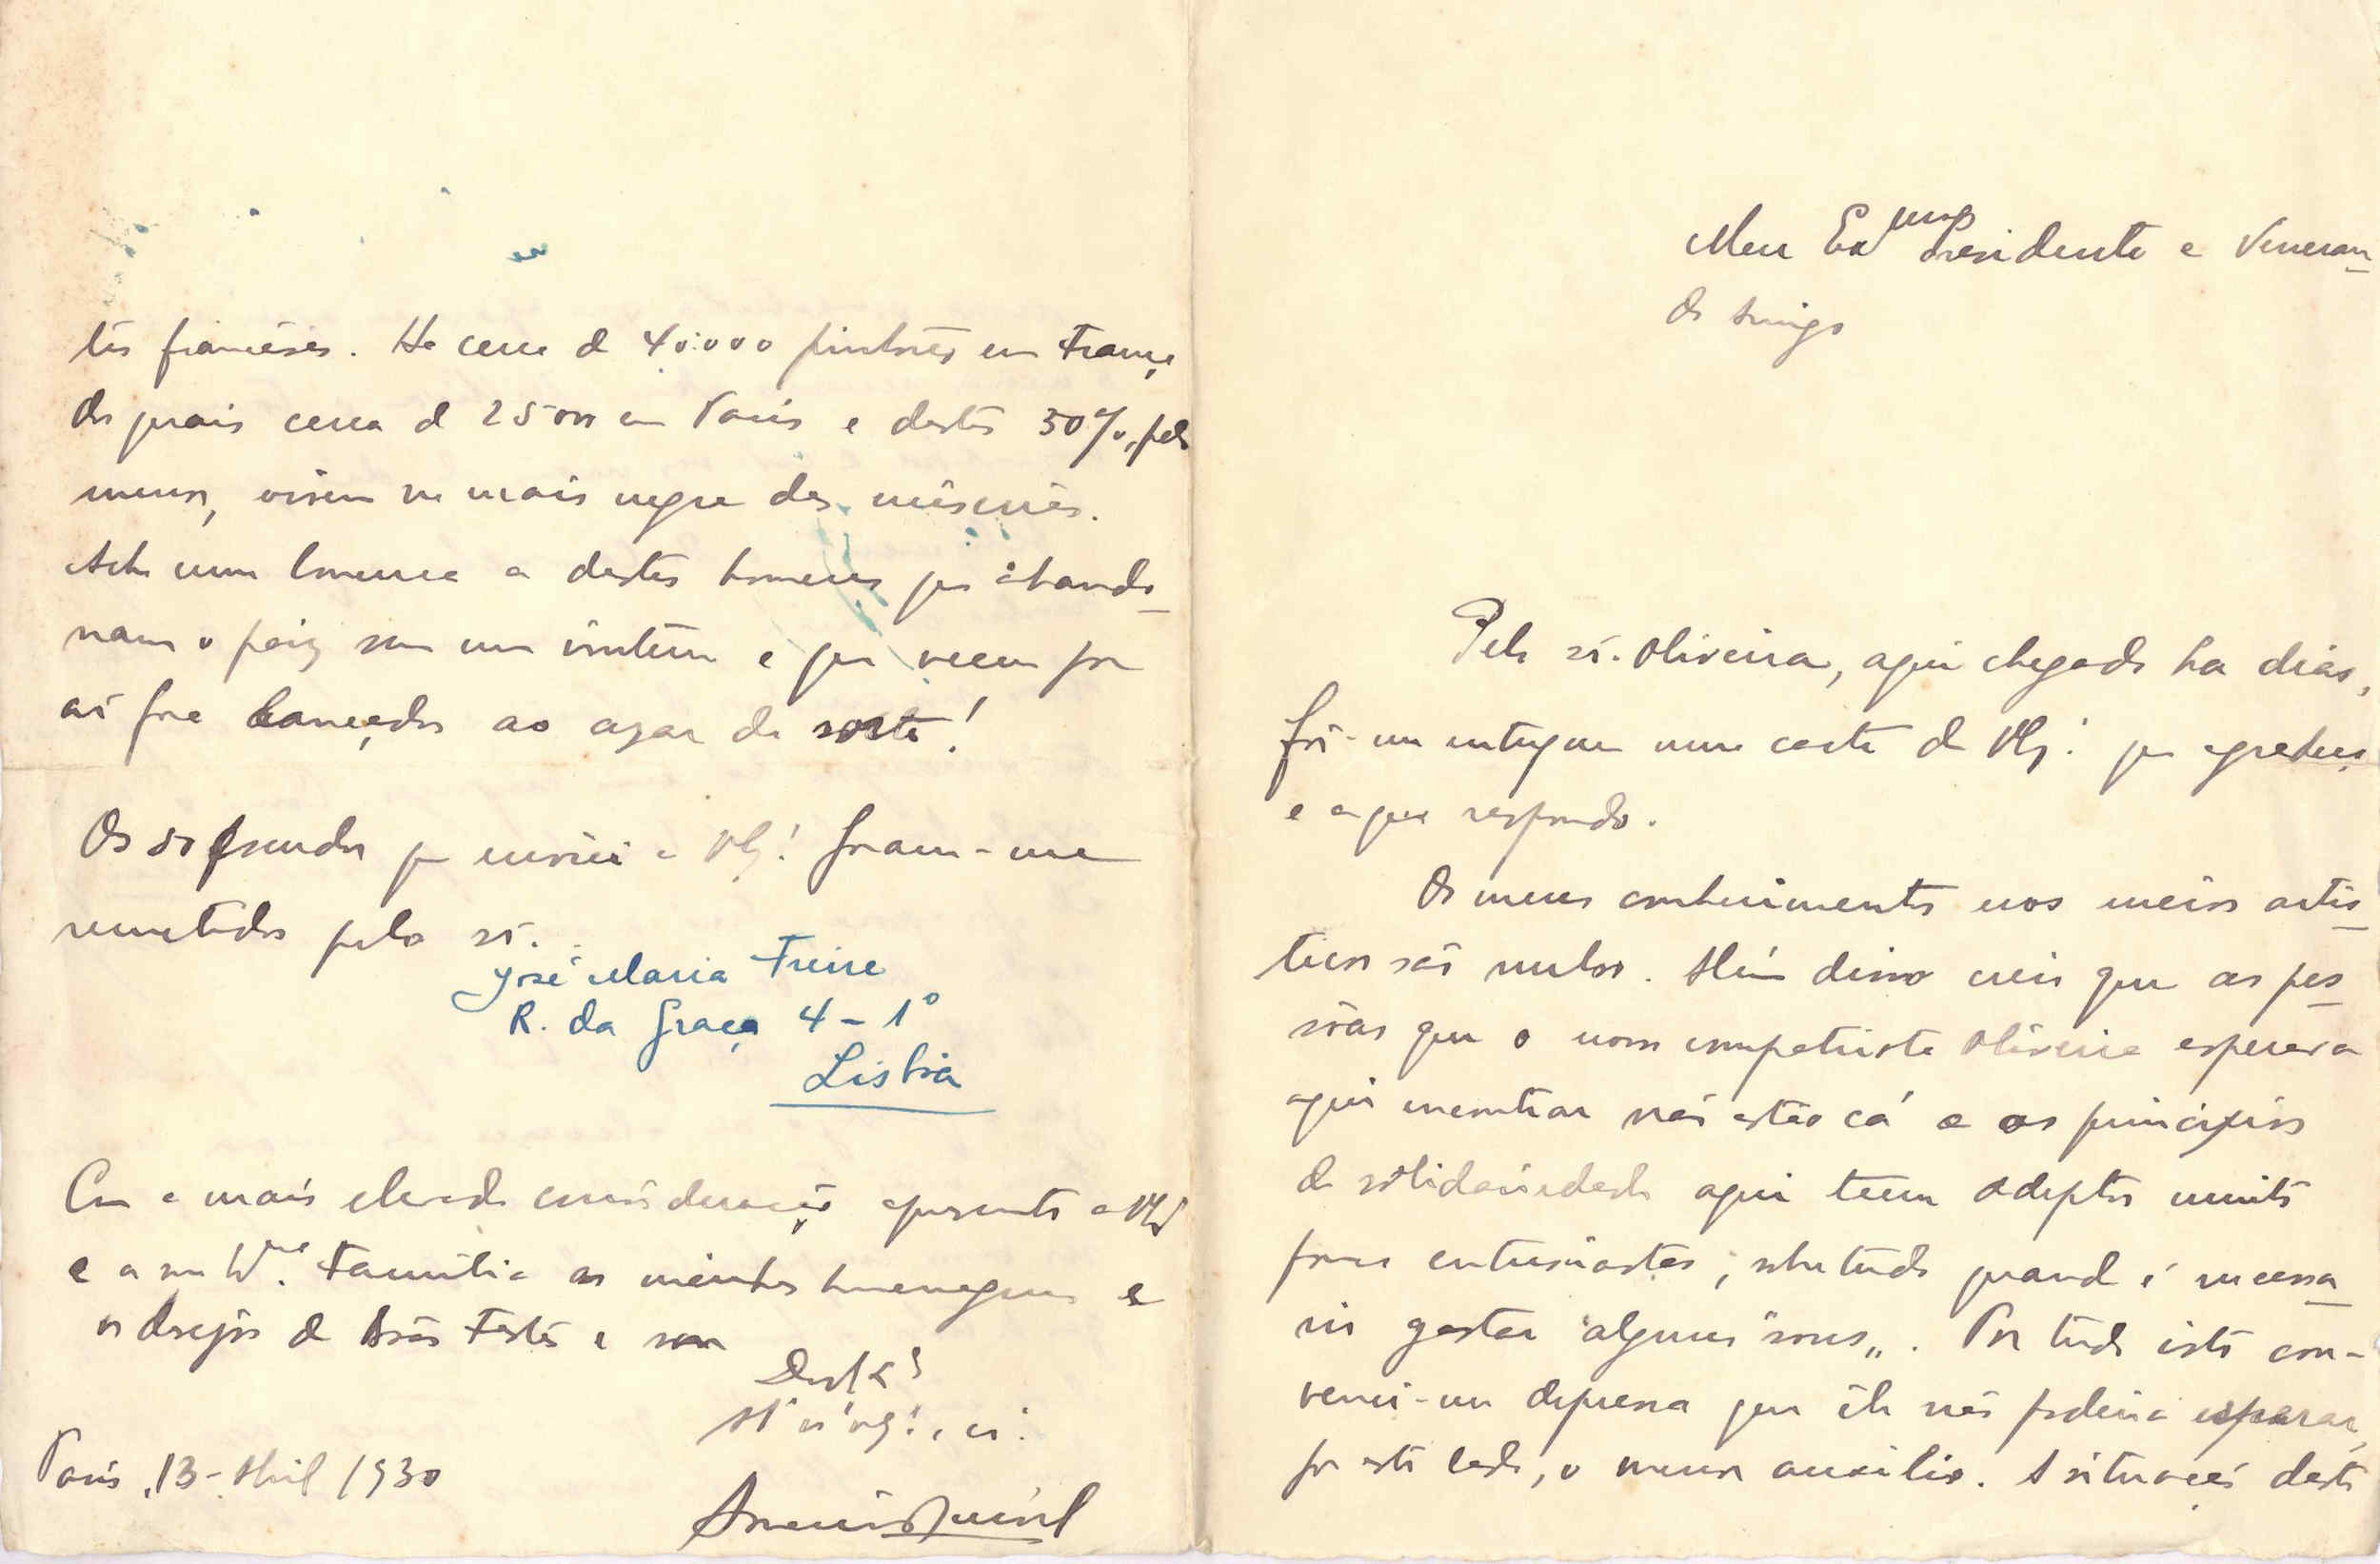 Meu Exmo Presidente e Veneran_
do Amigo
Pelo sr. Oliveira, aqui chegado ha dias,
foi-me entregue uma carta de que agradeço
e a que respondo.
Os meus conhecimentos nos meios artis_
ticos são nulos. Além disso creio que as pes_
sôas que o nosso compatriota Oliveira esperava
aqui encontrar não estão cá e os principios
de solidariedade aqui teem adeptos muito
pouco entusiastas, sobretudo quando é necessa_
rio gastar "alguns sous„. Por tudo isto con-
venci-me depressa que êle não poderia esperar,
por este lado, o menor auxilio. A situação deste
tes francêses. Ha cerca de 40:000 pintores em França
dos quais cerca de 25000 em Paris e destes 50%, pelo
menos, vivem na mais negra das misérias.
Acho uma loucura a destes homens que abando_
nam o paiz sem um vintem e que veem por
aí fora lançados ao azar da sorte!
Os 50 escudos que enviei a foram-me
remetidos pelo sr.
José Maria Freire
R. da Graça 4-1º
Lisboa
Com a mais elevada consideração apresento a
e a sua Familia as minhas homenagens e
os desejos de Bôas Festas e sou
Paris, 13-Abril 1930